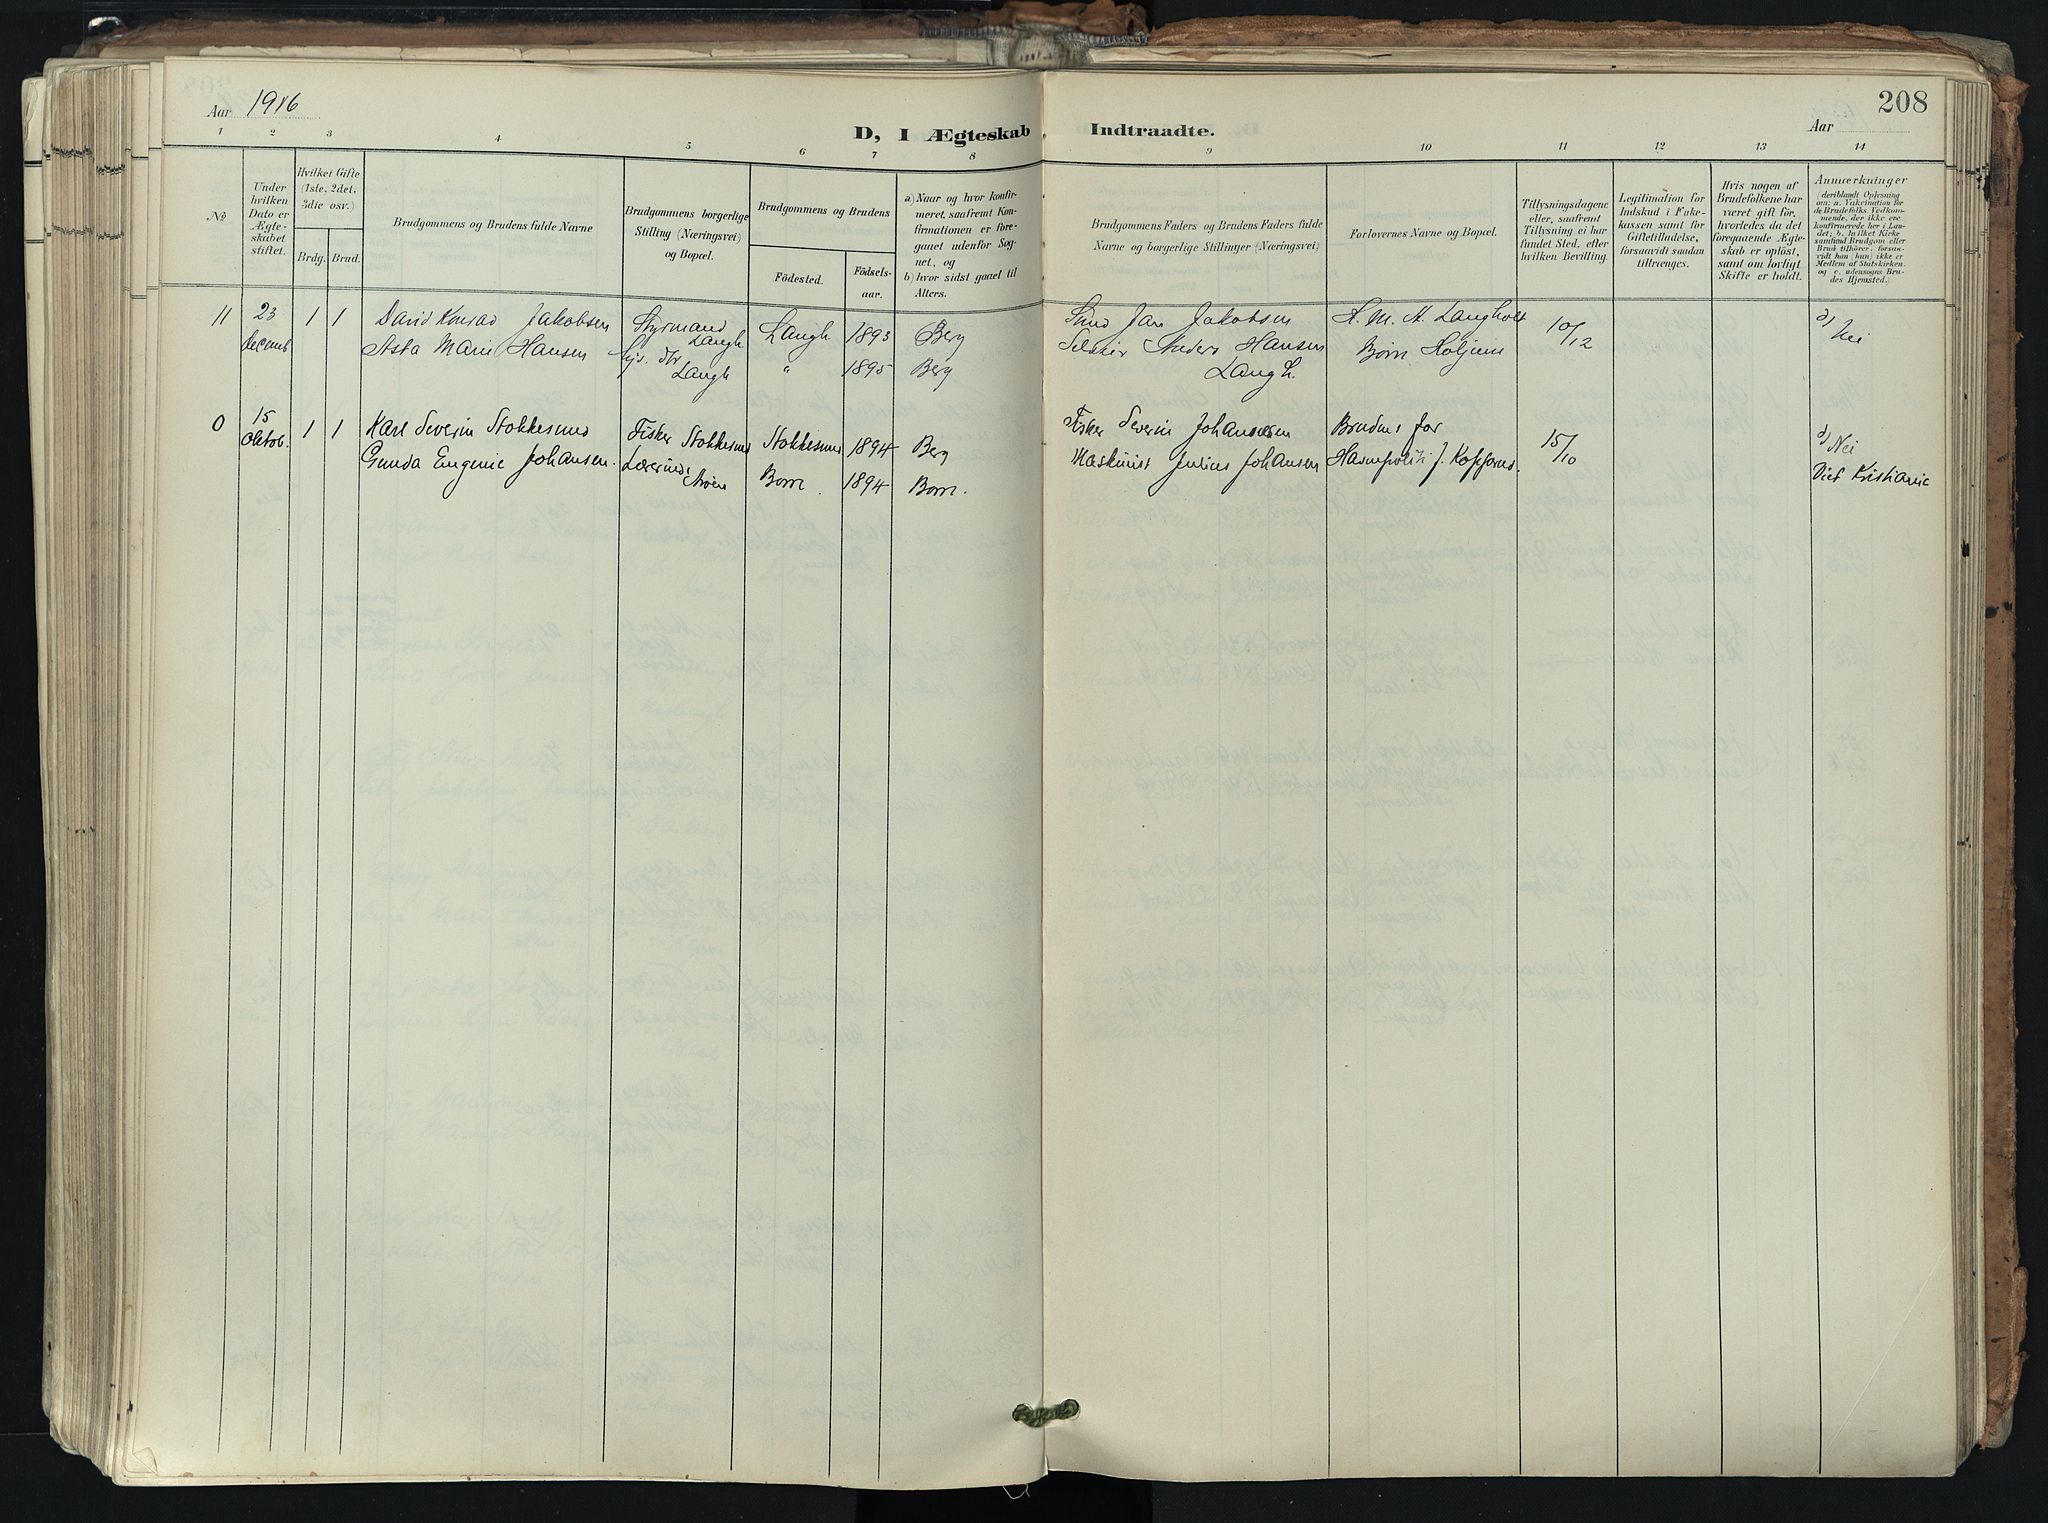 Aar 1916
208
D, I Ægteskab Indtraadte.
Aar
1 2 3 4 5 6 7 8 9 10 11 12 13 14
No
Under hvilken Dato er Ægte-skabet stiftet.
Hvilket Gifte (1ste, 2det, 3die osv.)
Brdg. Brud.
Brudgommens og Brudens fulde Navne
Brudgommens borgerlige Stilling (Næringsvei) og Bopæl.
Brudgommens og Brudens
Födested.
Födsels-aar.
a) Naar og hvor konfir-meret, saafremt Kon-firmationen er fore-gaaet udenfor Sog-net, og
b) hvor sidst gaaet til Alters.
Brudgommens Faders og Brudens Faders fulde Navne og borgerlige Stillinger (Næringsvei)
Forlovernes Navne og Bopæl.
Tillysningsdagene eller, saafremt Tillysning ei har fundet Sted, efter hvilken Bevilling.
Legitimation for Indskud i Enke-kassen samt for Giftetilladelse, forsaavidt saadan tiltrænges.
Hvis nogen af Brudefolkene har været gift för, hvorledes da det foregaaende Ægte-skab er oplöst, samt om lovligt Skifte er holdt.
Anmærkninger
(deriblandt Oplysning om: a. Vakcination for de Brudefolks Vedkom-mende, der ikke ere konfirmerede her i Lan-det; b. hvilket Kirke-samfund Brudgom eller Brud tilhörer, forsaa-vidt han (hun) ikke er Medlem af Statskirken, og c. udensogns Bru-des Hjemsted.)
11 23 1 1 David Konrad Jakobsen Styrmand Langh Langh 1893 Berg Jan Jakobsen A. M. A. Langholt 10/12 d) Nei
decemb Asta Marie Hansen hjs. dtr Langh " 1895 Berg Anders Hansen Langh.
0 15 Oktob. 1 1 Karl Severin Stokkesund Fisker Stokkesund Stokkesund 1894 Berg Fisker Severin Johannesen Brudens far 15/10 d) Nei
Gunda Eugenie Johansen. Lærerinde 1894 Maskinist Julius Johansen Viet Kristiania